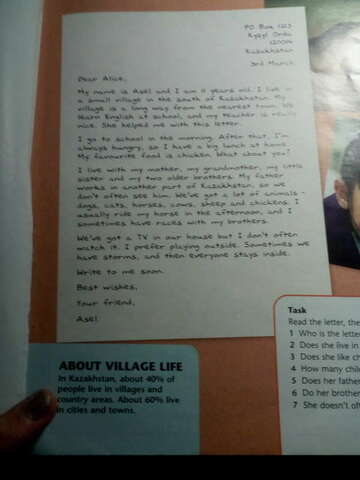 PO Box 1213
Kyzyl Orda
120014
Kazakhstan
3rd March
Dear Alice,
My name is Asel and I am 11 years old. I live in
a small village in the south of Kazakhstan. My
village is a long way from the nearest town. We
learn English at school, and my teacher is really
nice. She helped me with this letter.
I go to school in the morning. After that, I'm
always hungry, so I have a big lunch at home.
My favourite food is chicken. What about you?
I live with my mother, my grandmother, my little
sister and my two older brothers. My father
works in another part of Kazakhstan, so we
don't often see him. We've got a lot of animals –
dogs, cats, horses, cows, sheep and chickens. I
usually ride my horse in the afternoon, and I
sometimes have races with my brothers.
We've got a TV in our house but I don't often
watch it. I prefer playing outside. Sometimes we
have storms, and then everyone stays inside.
Write to me soon.
Best wishes,
Your friend,
Asel
ABOUT VILLAGE LIFE
In Kazakhstan, about 40% of
people live in villages and
country areas. About 60% live
in cities and towns.
Task
Read the letter, the
1 Who is the letter
2 Does she live in
3 Does she like ch
4 How many chil
5 Does her father
6 Do her brother
7 She doesn't oft